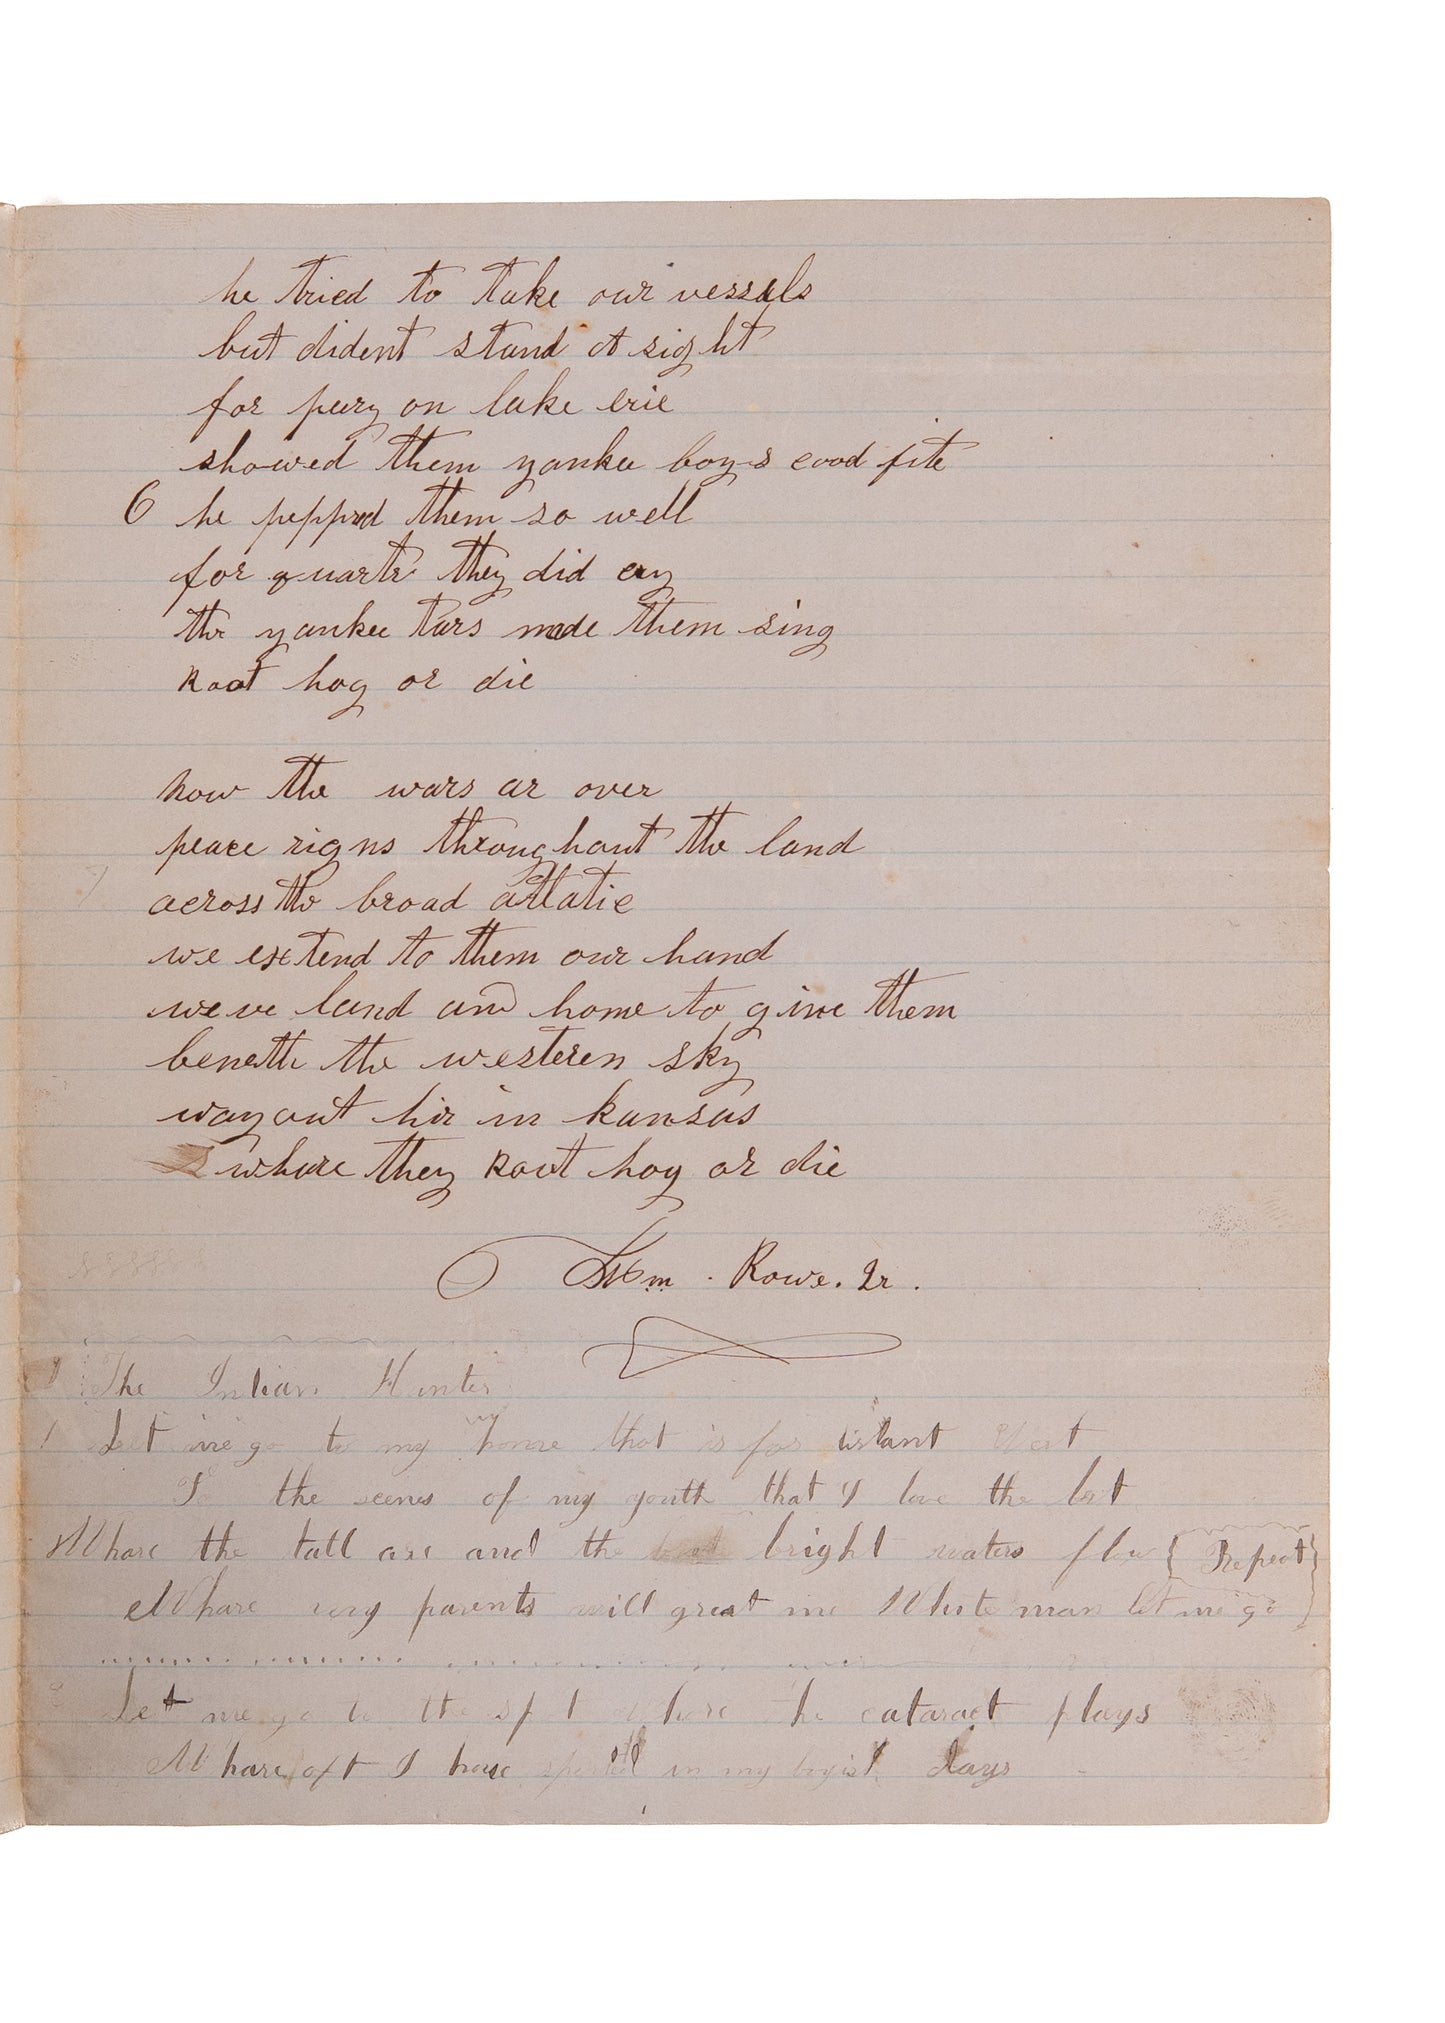 he tried to take our vessals
but dident stand at sight
for pery on lake erie
showed them yankee boys cood fite
6 he peppred them so well
for quartr they did cry
the yankee tars made them sing
Root hog or die
now the wars ar over
peace rigns throughout the land
7 across the broad attlatic
we extend to them our hand
weve land and home to give them
beneth the westeren sky
way out hir in kansas
whare they Root hog or die
Wm. Rowe. Jr.
The Indian Hunter
1 Let me go to my home that is far distant West
To the scenes of my youth that I love the best
Whare the tall are and the bright waters flow { Repeat }
Whare my parents will great me White man let me go
2 Let me go to the spot Whare the cataract plays
Whare oft I have sported in my boyish days